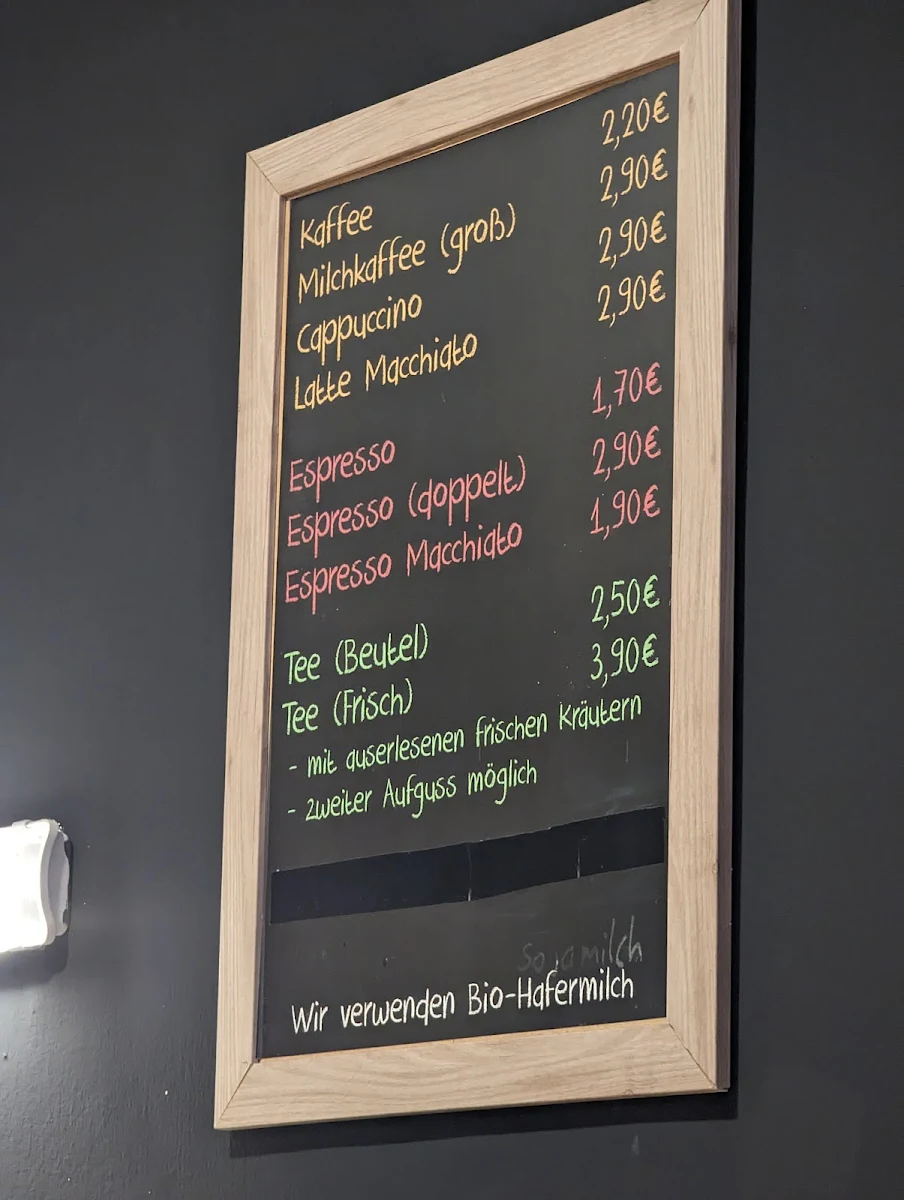 Kaffee 2,20€
Milchkaffee (groß) 2,90€
Cappuccino 2,90€
Latte Macchiato 2,90€
Espresso 1,70€
Espresso (doppelt) 2,90€
Espresso Macchiato 1,90€
Tee (Beutel) 2,50€
Tee (Frisch) 3,90€
- mit auserlesenen frischen Kräutern
- zweiter Aufguss möglich
Sojamilch
Wir verwenden Bio-Hafermilch